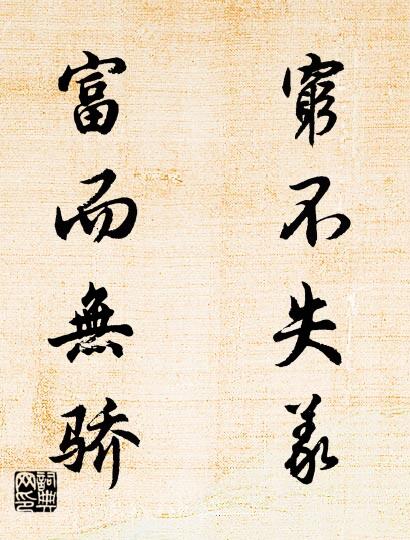 窮不失義
富而無骄
詞典
网印